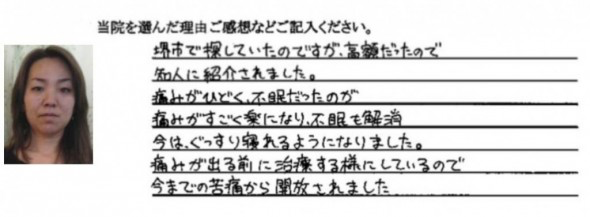 当院を選んだ理由ご感想などご記入ください。
堺市で探していたのですが、高額だったので
知人に紹介されました。
痛みがひどく、不眠だったのが
痛みがすごく楽になり、不眠も解消
今は、ぐっすり寝れるようになりました。
痛みが出る前に治療する様にしているので
今までの苦痛から開放されました